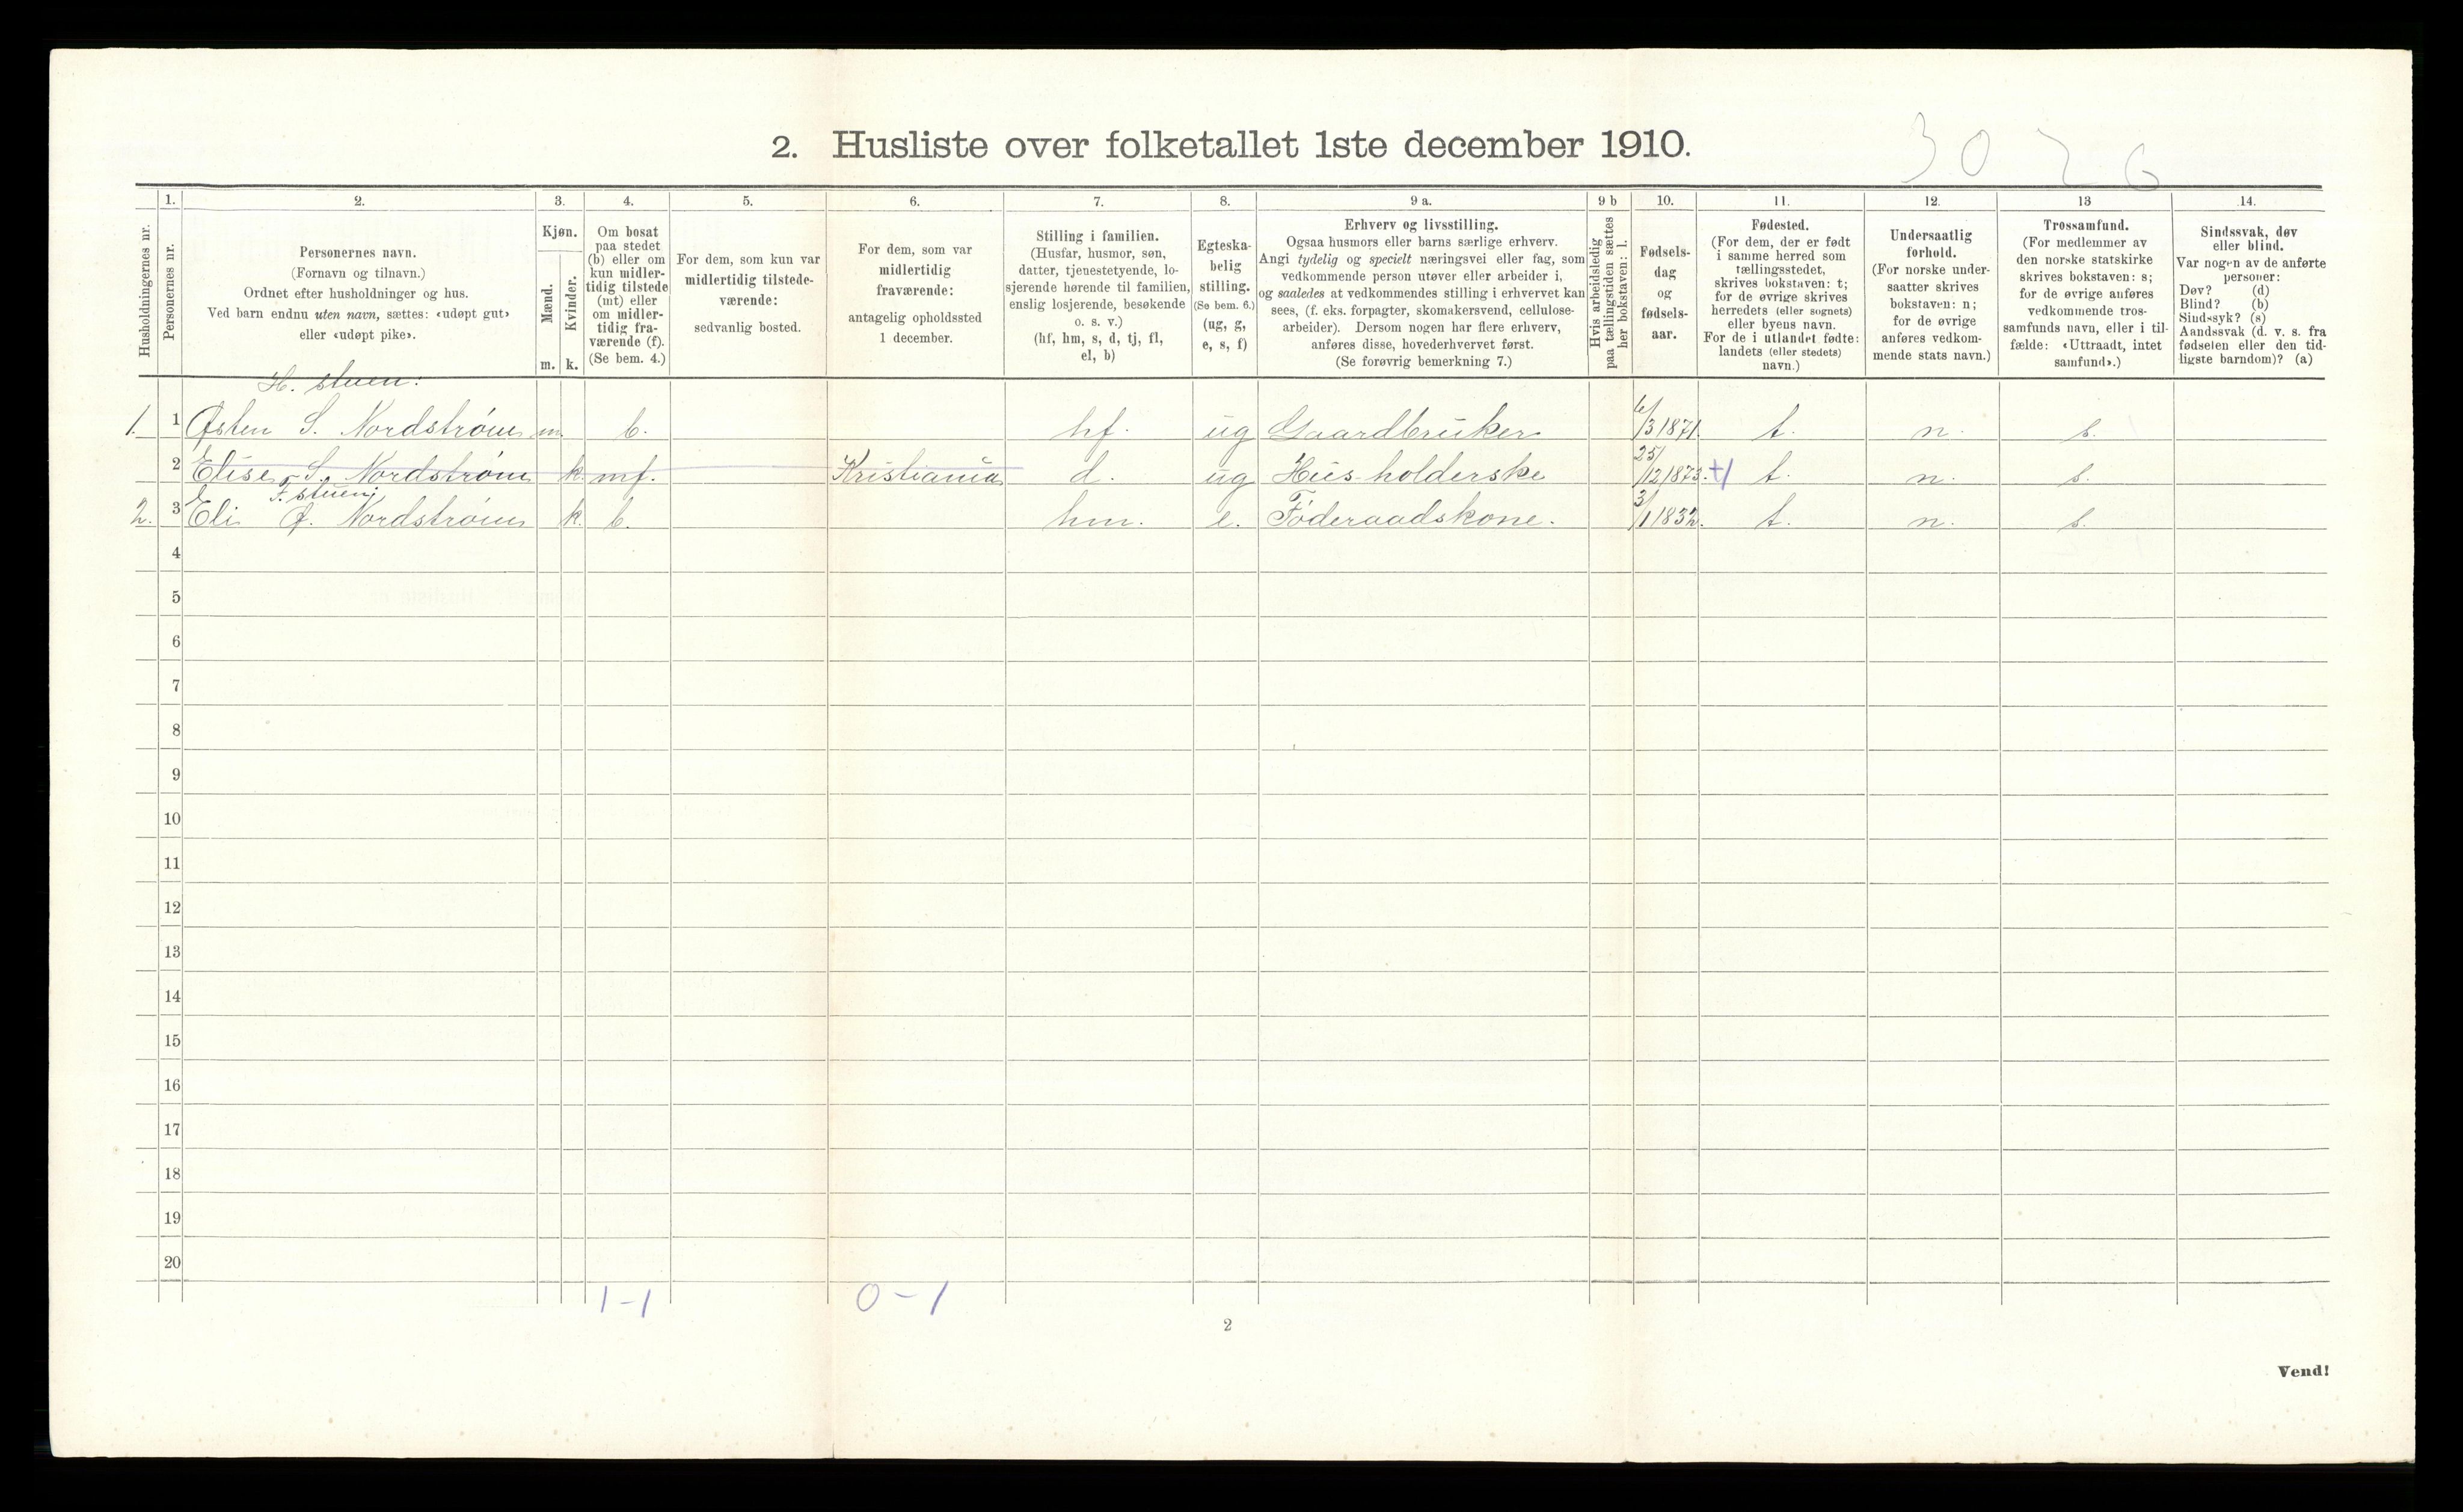 2. Husliste over folketallet 1ste december 1910.
3026
Husholdningernes nr.
1.
Personernes nr.
2.
Personernes navn.
(Fornavn og tilnavn.)
Ordnet efter husholdninger og hus.
Ved barn endnu uten navn, sættes: «udøpt gut»
eller «udøpt pike».
3.
Kjøn.
Mænd.
m.
Kvinder.
k.
4.
Om bosat
paa stedet
(b) eller om
kun midler-
tidig tilstede
(mt) eller
om midler-
tidig fra-
værende (f).
(Se bem. 4.)
5.
For dem, som kun var
midlertidig tilstede-
værende:
sedvanlig bosted.
6.
For dem, som var
midlertidig
fraværende:
antagelig opholdssted
1 december.
7.
Stilling i familien.
(Husfar, husmor, søn,
datter, tjenestetyende, lo-
sjerende hørende til familien,
enslig losjerende, besøkende
o. s. v.)
(hf, hm, s, d, tj, fl,
el, b)
8.
Egteska-
belig
stilling.
(Se bem. 6.)
(ug, g,
e, s, f)
9 a.
Erhverv og livsstilling.
Ogsaa husmors eller barns særlige erhverv.
Angi tydelig og specielt næringsvei eller fag, som
vedkommende person utøver eller arbeider i,
og saaledes at vedkommendes stilling i erhvervet kan
sees, (f. eks. forpagter, skomakersvend, cellulose-
arbeider). Dersom nogen har flere erhverv,
anføres disse, hovederhvervet først.
(Se forøvrig bemerkning 7.)
9 b
Hvis arbeidsledig
paa tællingstiden sættes
her bokstaven: l.
10.
Fødsels-
dag
og
fødsels-
aar.
11.
Fødested.
(For dem, der er født
i samme herred som
tællingsstedet,
skrives bokstaven: t;
for de øvrige skrives
herredets (eller sognets)
eller byens navn.
For de i utlandet fødte:
landets (eller stedets)
navn.)
12.
Undersaatlig
forhold.
(For norske under-
saatter skrives
bokstaven: n;
for de øvrige
anføres vedkom-
mende stats navn.)
13
Trossamfund.
(For medlemmer av
den norske statskirke
skrives bokstaven: s;
for de øvrige anføres
vedkommende tros-
samfunds navn, eller i til-
fælde: «Uttraadt, intet
samfund».)
14.
Sindssvak, døv
eller blind.
Var nogen av de anførte
personer:
Døv? (d)
Blind? (b)
Sindssyk? (s)
Aandssvak (d. v. s. fra
fødselen eller den tid-
ligste barndom)? (a)
H. stuen:
1. 1 Østen S. Nordstrøm m. b. hf. ug Gaardbruker 6/3 1871. t. n. s.
2 Elise S. Nordstrøm k. mf. Kristiania d. ug Husholderske 25/12 1873. t. n. s.
F. stuen:
2. 3 Eli Ø. Nordstrøm k. b. hm. e. Føderaadskone. 3/1 1832. t. n. s.
4
5
6
7
8
9
10
11
12
13
14
15
16
17
18
19
20
1-1 0-1
2
Vend!